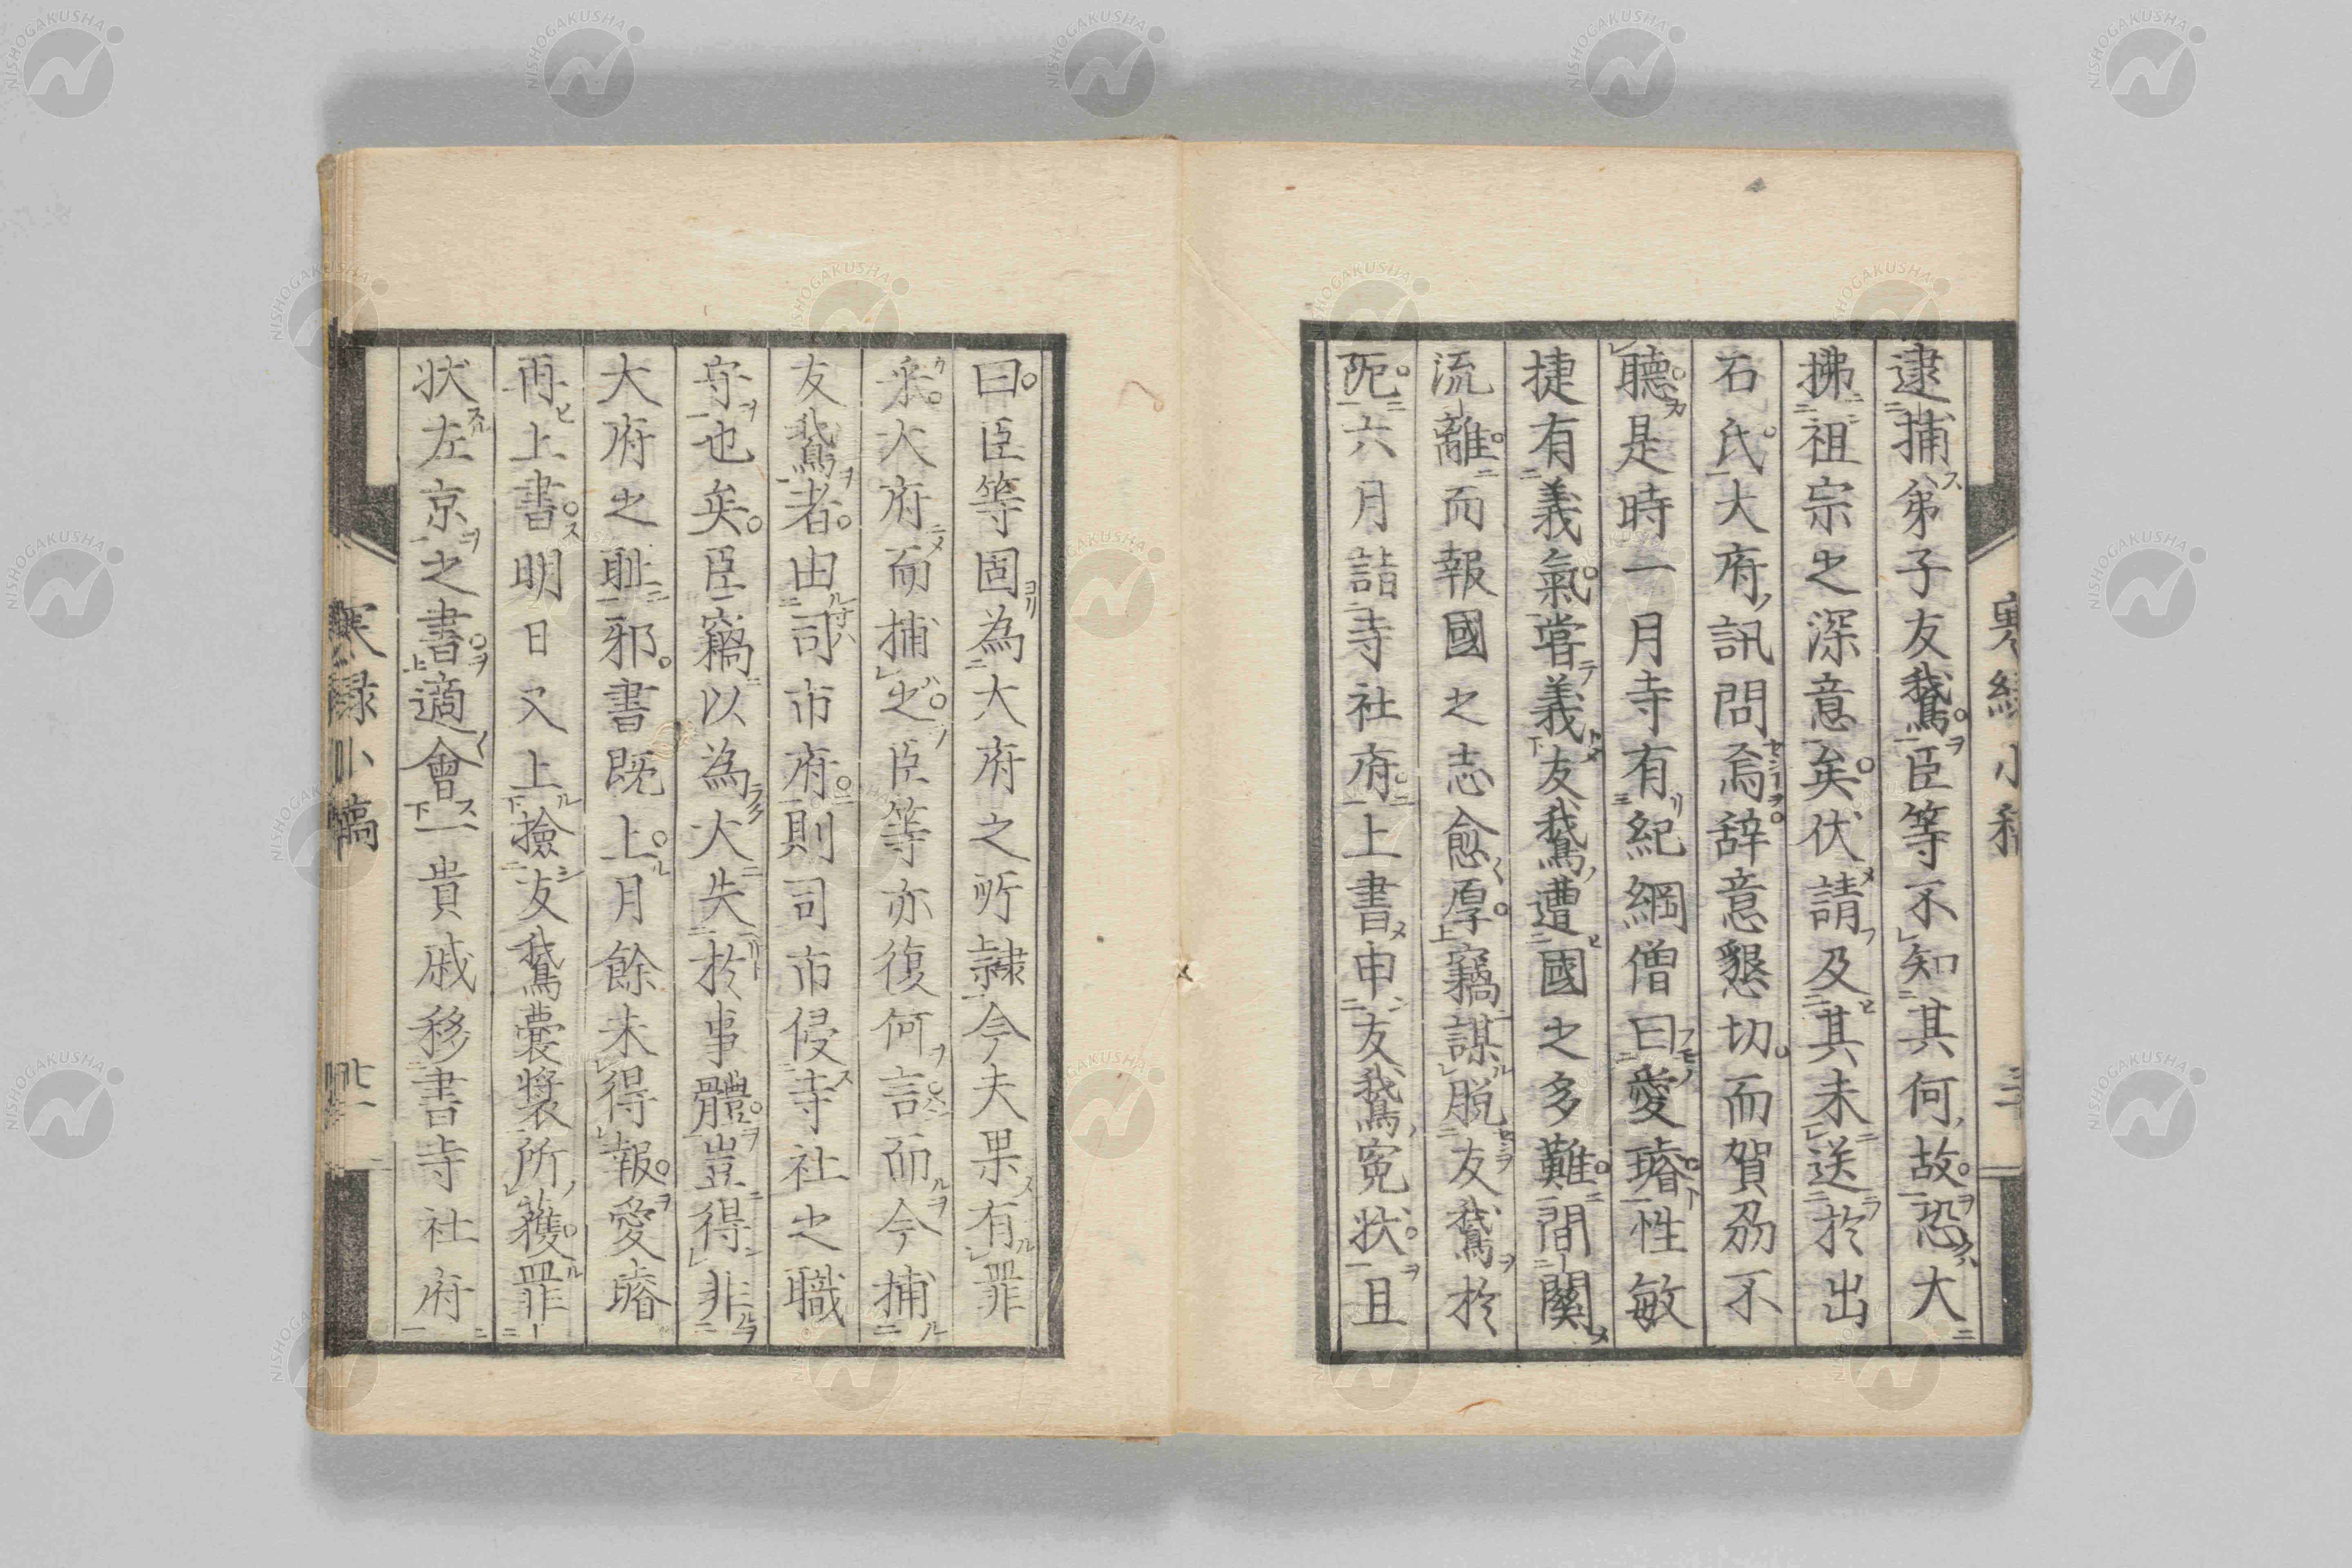 逮捕弟子友鵞臣等不知其何故恐大
拂祖宗之深意矣伏請及其未送於出
石氏大府訊問焉辞意懇切而賀劭不
聽是時一月寺有紀綱僧曰愛璿性敏
捷有義氣嘗義友鵞遭國之多難間關
流離而報國之志愈厚竊謀脱友鵞於
阨六月詣寺社府上書申友鵞寃状且
曰臣等固為大府之所隷今夫果有罪
于大府而捕之臣等亦復何言而今捕
友鵞者由司市府則司市侵寺社之職
守也矣臣竊以為大失於事體豈得非
大府之耻邪書既上月餘未得報愛璿
再上書明日又上撿友鵞嚢裝所獲罪
状左京之書適會一貴戚移書寺社府
寒緑小稿
NISHOGAKUSHA